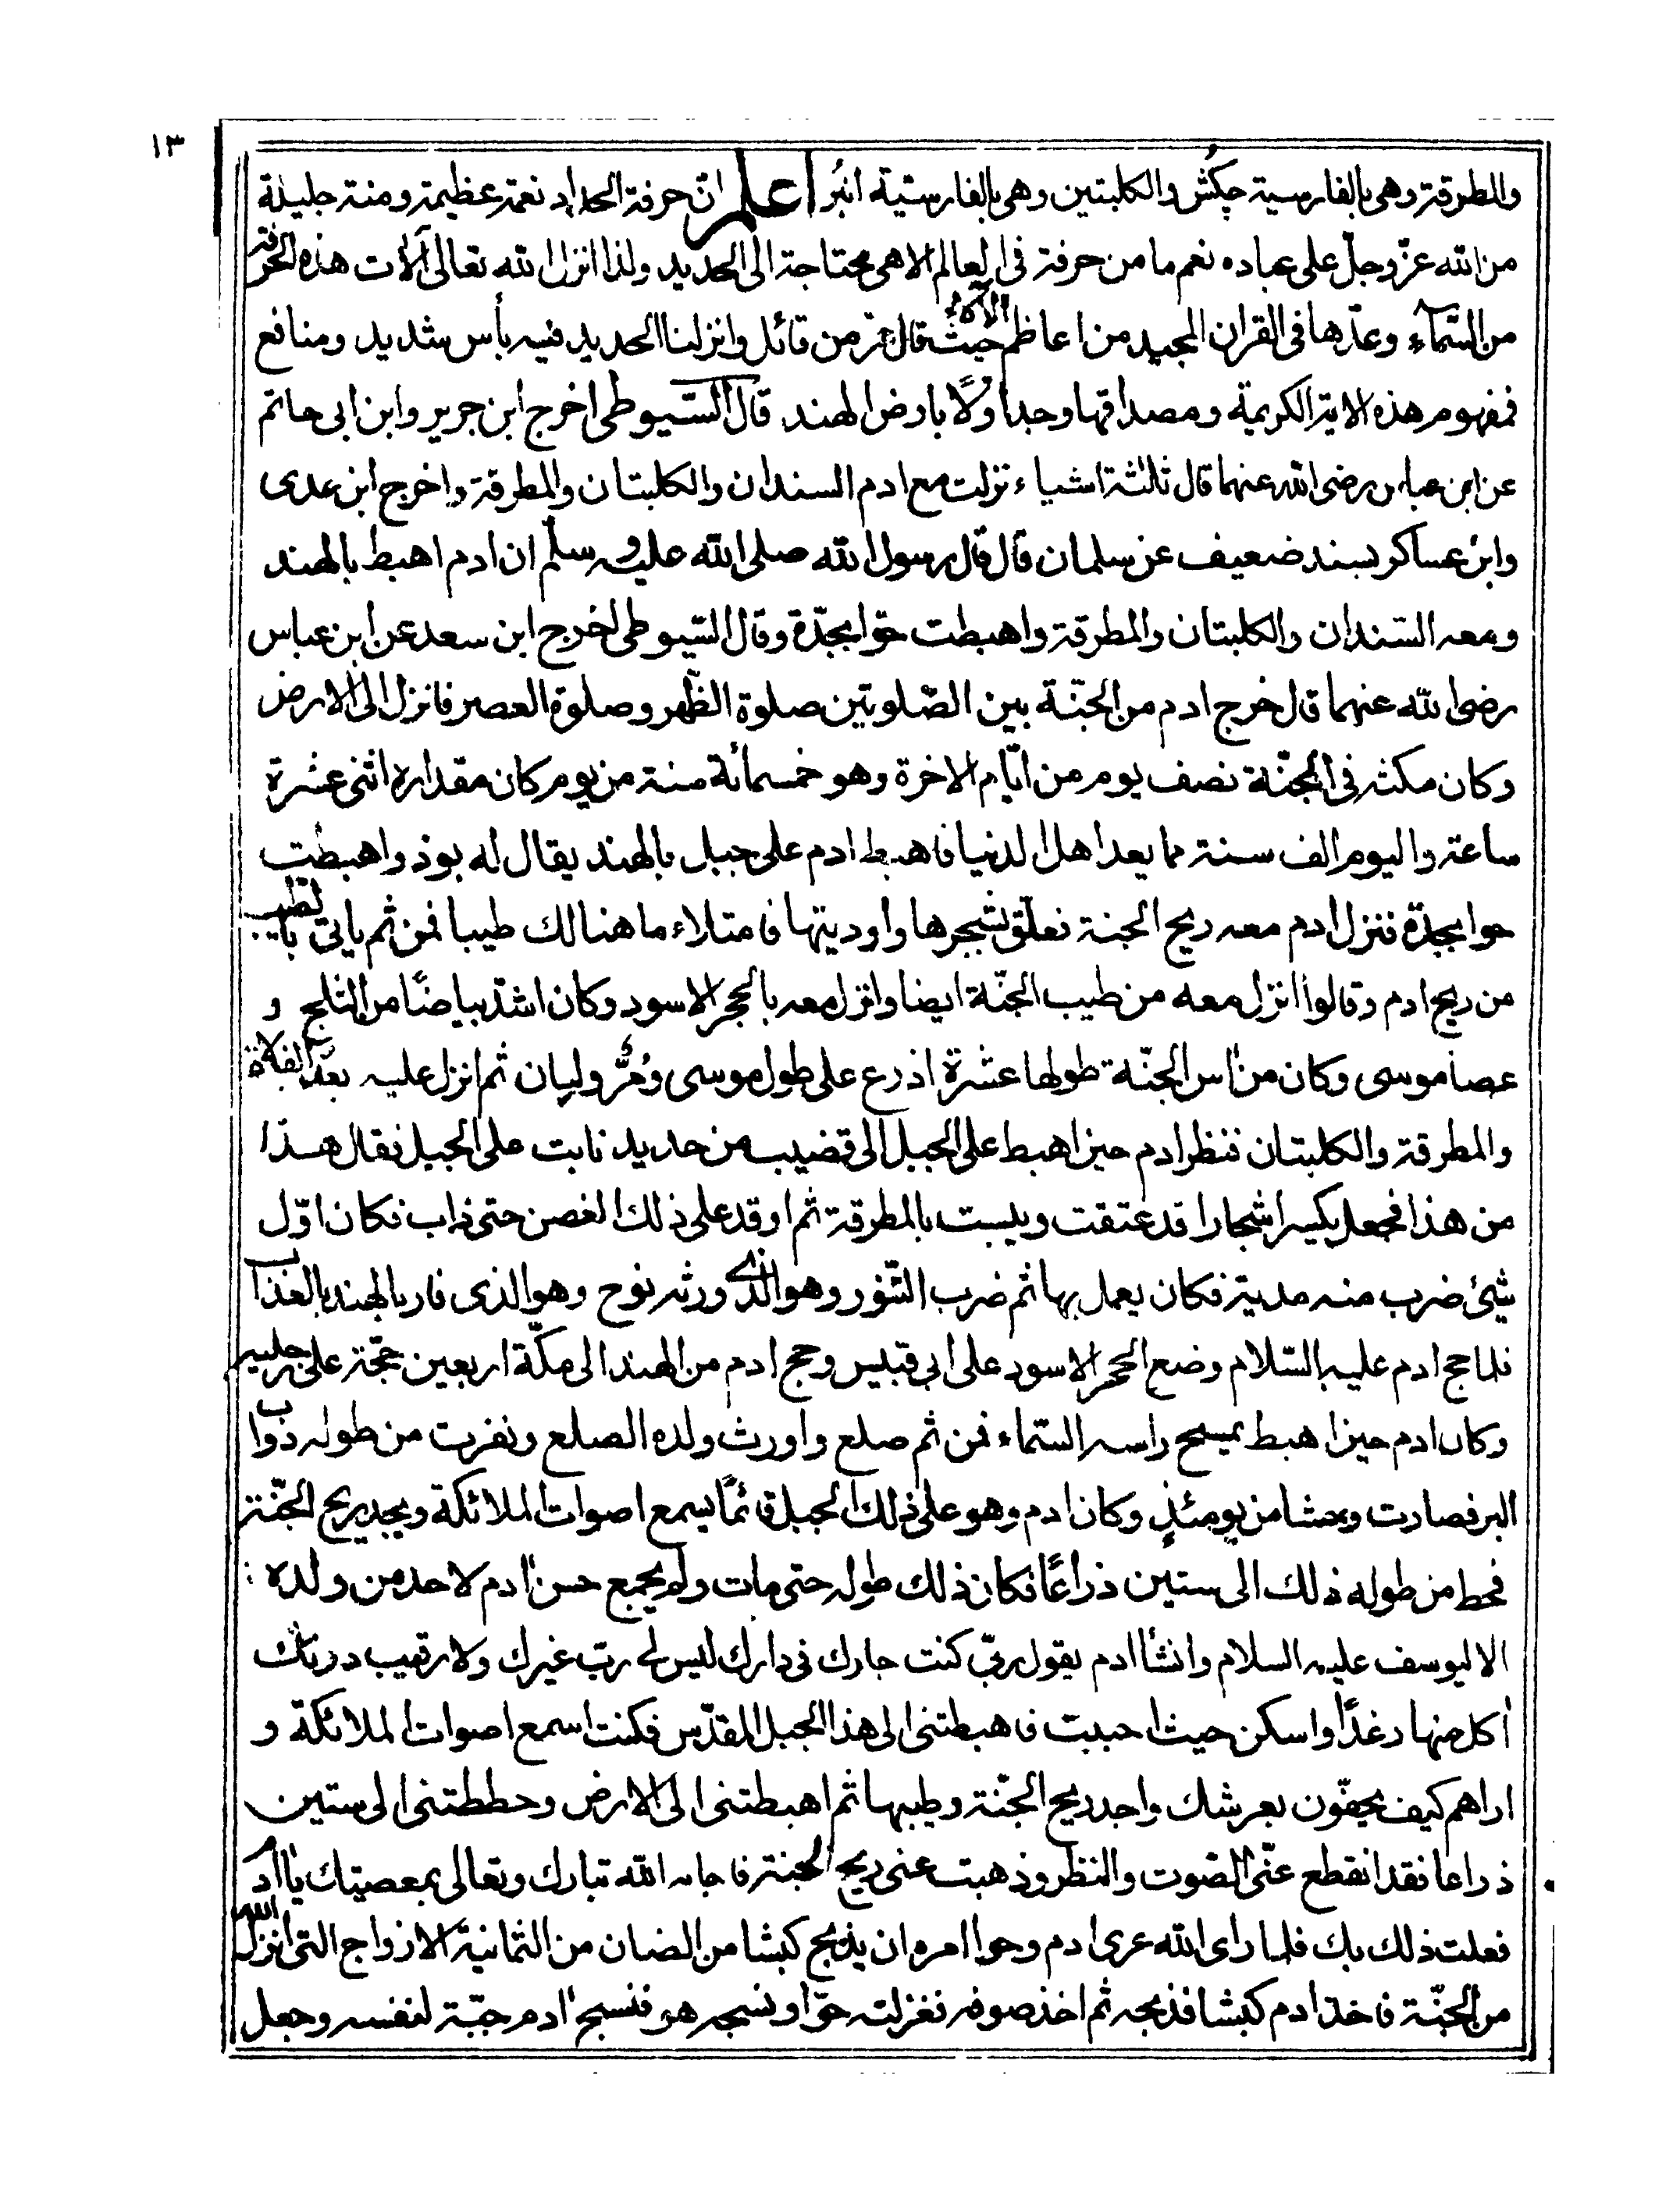 ١٣
والمطرقة وهى بالفارسية چكُش والكلبتين وهى بالفارسية انبُر اعلم ان حرفة الحداد نعمة عظيمة ومنة جليلة
من الله عزّ وجلّ على عباده نعم ما من حرفة فى العالم الا هى محتاجة الى الحديد ولذا انزل الله تعالى آلات هذه الحرفة
من السَّمآء وعدّها فى القران المجيد من اعاظم الآلاء حيث قال عز من قائل وانزلنا الحديد فيه بأس شديد ومنافع
فمفهوم هذه الاية الكريمة ومصداقها وجد اوّلًا بارض الهند قال السّيوطى اخرج ابن جرير وابن ابى حاتم
عن ابن عباس رضى الله عنهما قال ثلثة اشياء نزلت مع ادم السندان والكلبتان والمطرقة واخرج ابن عدى
وابن عساكر بسند ضعيف عن سلمان قال قال رسول الله صلى الله عليه وسلم ان ادم اهبط بالهند
ومعه السندان والكلبتان والمطرقة واهبطت حوّا بجدّة وقال السّيوطى اخرج ابن سعد عن ابن عباس
رضى الله عنهما قال خرج ادم من الجنّة بين الصّلوتين صلوة الظّهر وصلوة العصر فانزل الى الارض
وكان مكثه فى الجنّة نصف يوم من ايّام الاخرة وهو خمسمائة سنة من يوم كان مقداره اثنى عشرة
ساعة واليوم الف سنة مما يعد اهل الدنيا فاهبط ادم على جبل بالهند يقال له بوذ واهبطت
حوا بجدّة فنزل ادم معه ريح الجنة فعلق بشجرها واوديتها فامتلاء ما هنالك طيبا فمن ثم ياتى بالطيب
من ريح ادم وقالوا انزل معه من طيب الجنّة ايضا وانزل معه بالحجر الاسود وكان اشدّ بياضًا من الثلج و
عصا موسى وكان من اٰس الجنّة طولها عشرة اذرع على طول موسى ومُرٌّ ولبان ثم انزل عليه بعد العلاة
والمطرقة والكلبتان فنظر ادم حين اهبط على الجبل الى قضيب من حديد نابت على الجبل فقال هذا
من هذا فجعل يكسر اشجارا قد عتقت ويبست بالمطرقة ثم اوقد على ذلك الغصن حتى ذاب فكان اوّل
شئ ضرب منه مدية فكان يعمل بها ثم ضرب التنّور وهو الذى ورثه نوح وهو الذى فار بالهند بالعذاب
فلما حج ادم عليه السّلام وضع الحجر الاسود على ابى قبيس وحج ادم من الهند الى مكّة اربعين حجّة على رجليه
وكان ادم حين اهبط يمسح راسه السّماء فمن ثم صلع واورث ولده الصلع ونفرت من طوله دواب
البر فصارت وحشا من يومئذٍ وكان ادم وهو على ذلك الجبل قائمًا يسمع اصوات الملائكة ويجد ريح الجنّة
فحط من طوله ذلك الى ستين ذراعًا فكان ذلك طوله حتى مات ولم يجمع حسن ادم لاحد من ولده
الا ليوسف عليه السلام وانشأ ادم يقول ربّ كنت جارك فى دارك ليس لى ربّ غيرك ولا رقيب دونك
اٰكل منها رغدًا واسكن حيث احببت فاهبطتنى الى هذا الجبل المقدّس فكنت اسمع اصوات الملائكة و
اراهم كيف يحفّون بعرشك واجد ريح الجنّة وطيبها ثم اهبطتنى الى الارض وحططتنى الى ستين
ذراعا فقد انقطع عنّى الصّوت والنظر وذهبت عنى ريح الجنة فاجابه الله تبارك وتعالى بمعصيتك يا ادم
فعلت ذلك بك فلما راى الله عرى ادم وحوا امره ان يذبح كبشا من الضان من الثمانية الازواج التى انزل الله
من الجنّة فاخذ ادم كبشا فذبحه ثم اخذ صوفه فغزلته حوّا ونسجه هو فنسج ادم جبّة لنفسه وجعل